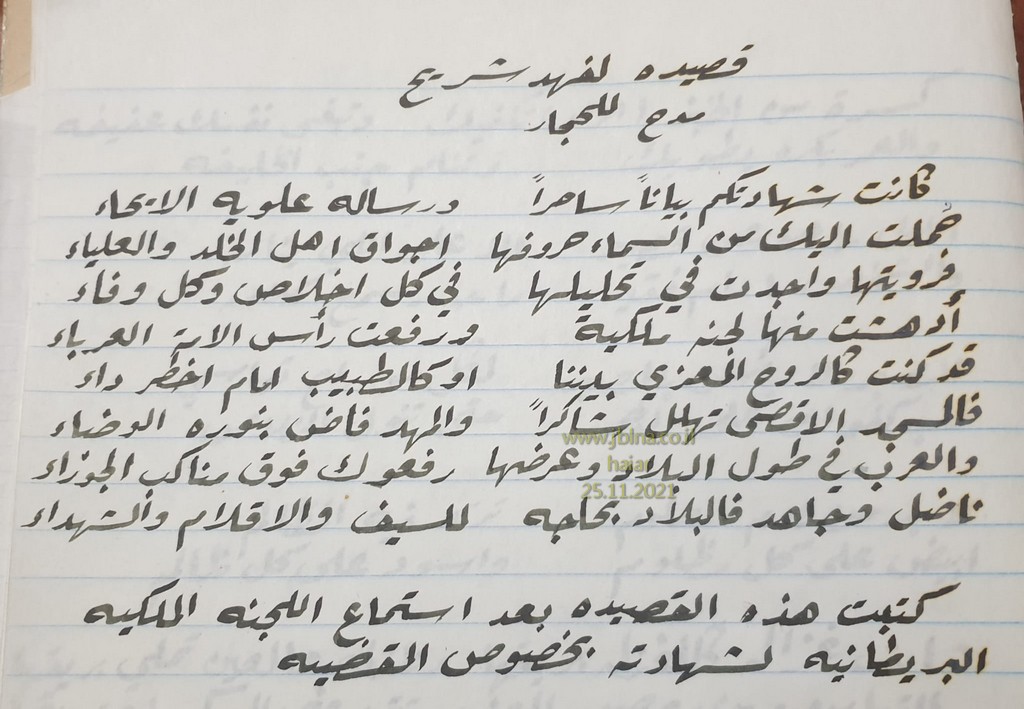 قصيده لفهد شريح
مدح للحجار
كانت شهادتكم بياناً ساحراً ورساله علويه الايحاء
حُملت اليك من السماء حروفها اجواق اهل الخلد والعلياء
فرويتها واجدت في تحليلها في كل اخلاص وكل وفاء
أدهشت منها لجنه ملكية ورفعت رأس الامة العرباء
قد كنت كالروح المعزي بيننا او كالطبيب امام اخطر داء
فالمسجد الاقصى تهلل شاكراً والمهد فاض بنوره الوضاء
والعرب في طول البلاد وعرضها رفعوك فوق مناكب الجوزاء
ناضل وجاهد فالبلاد بحاجه للسيف والاقلام والشهداء
كتبت هذه القصيده بعد استماع اللجنه الملكيه
البريطانيه لشهادته بخصوص القضيه
www.jbina.co.il
hajar
25.11.2021